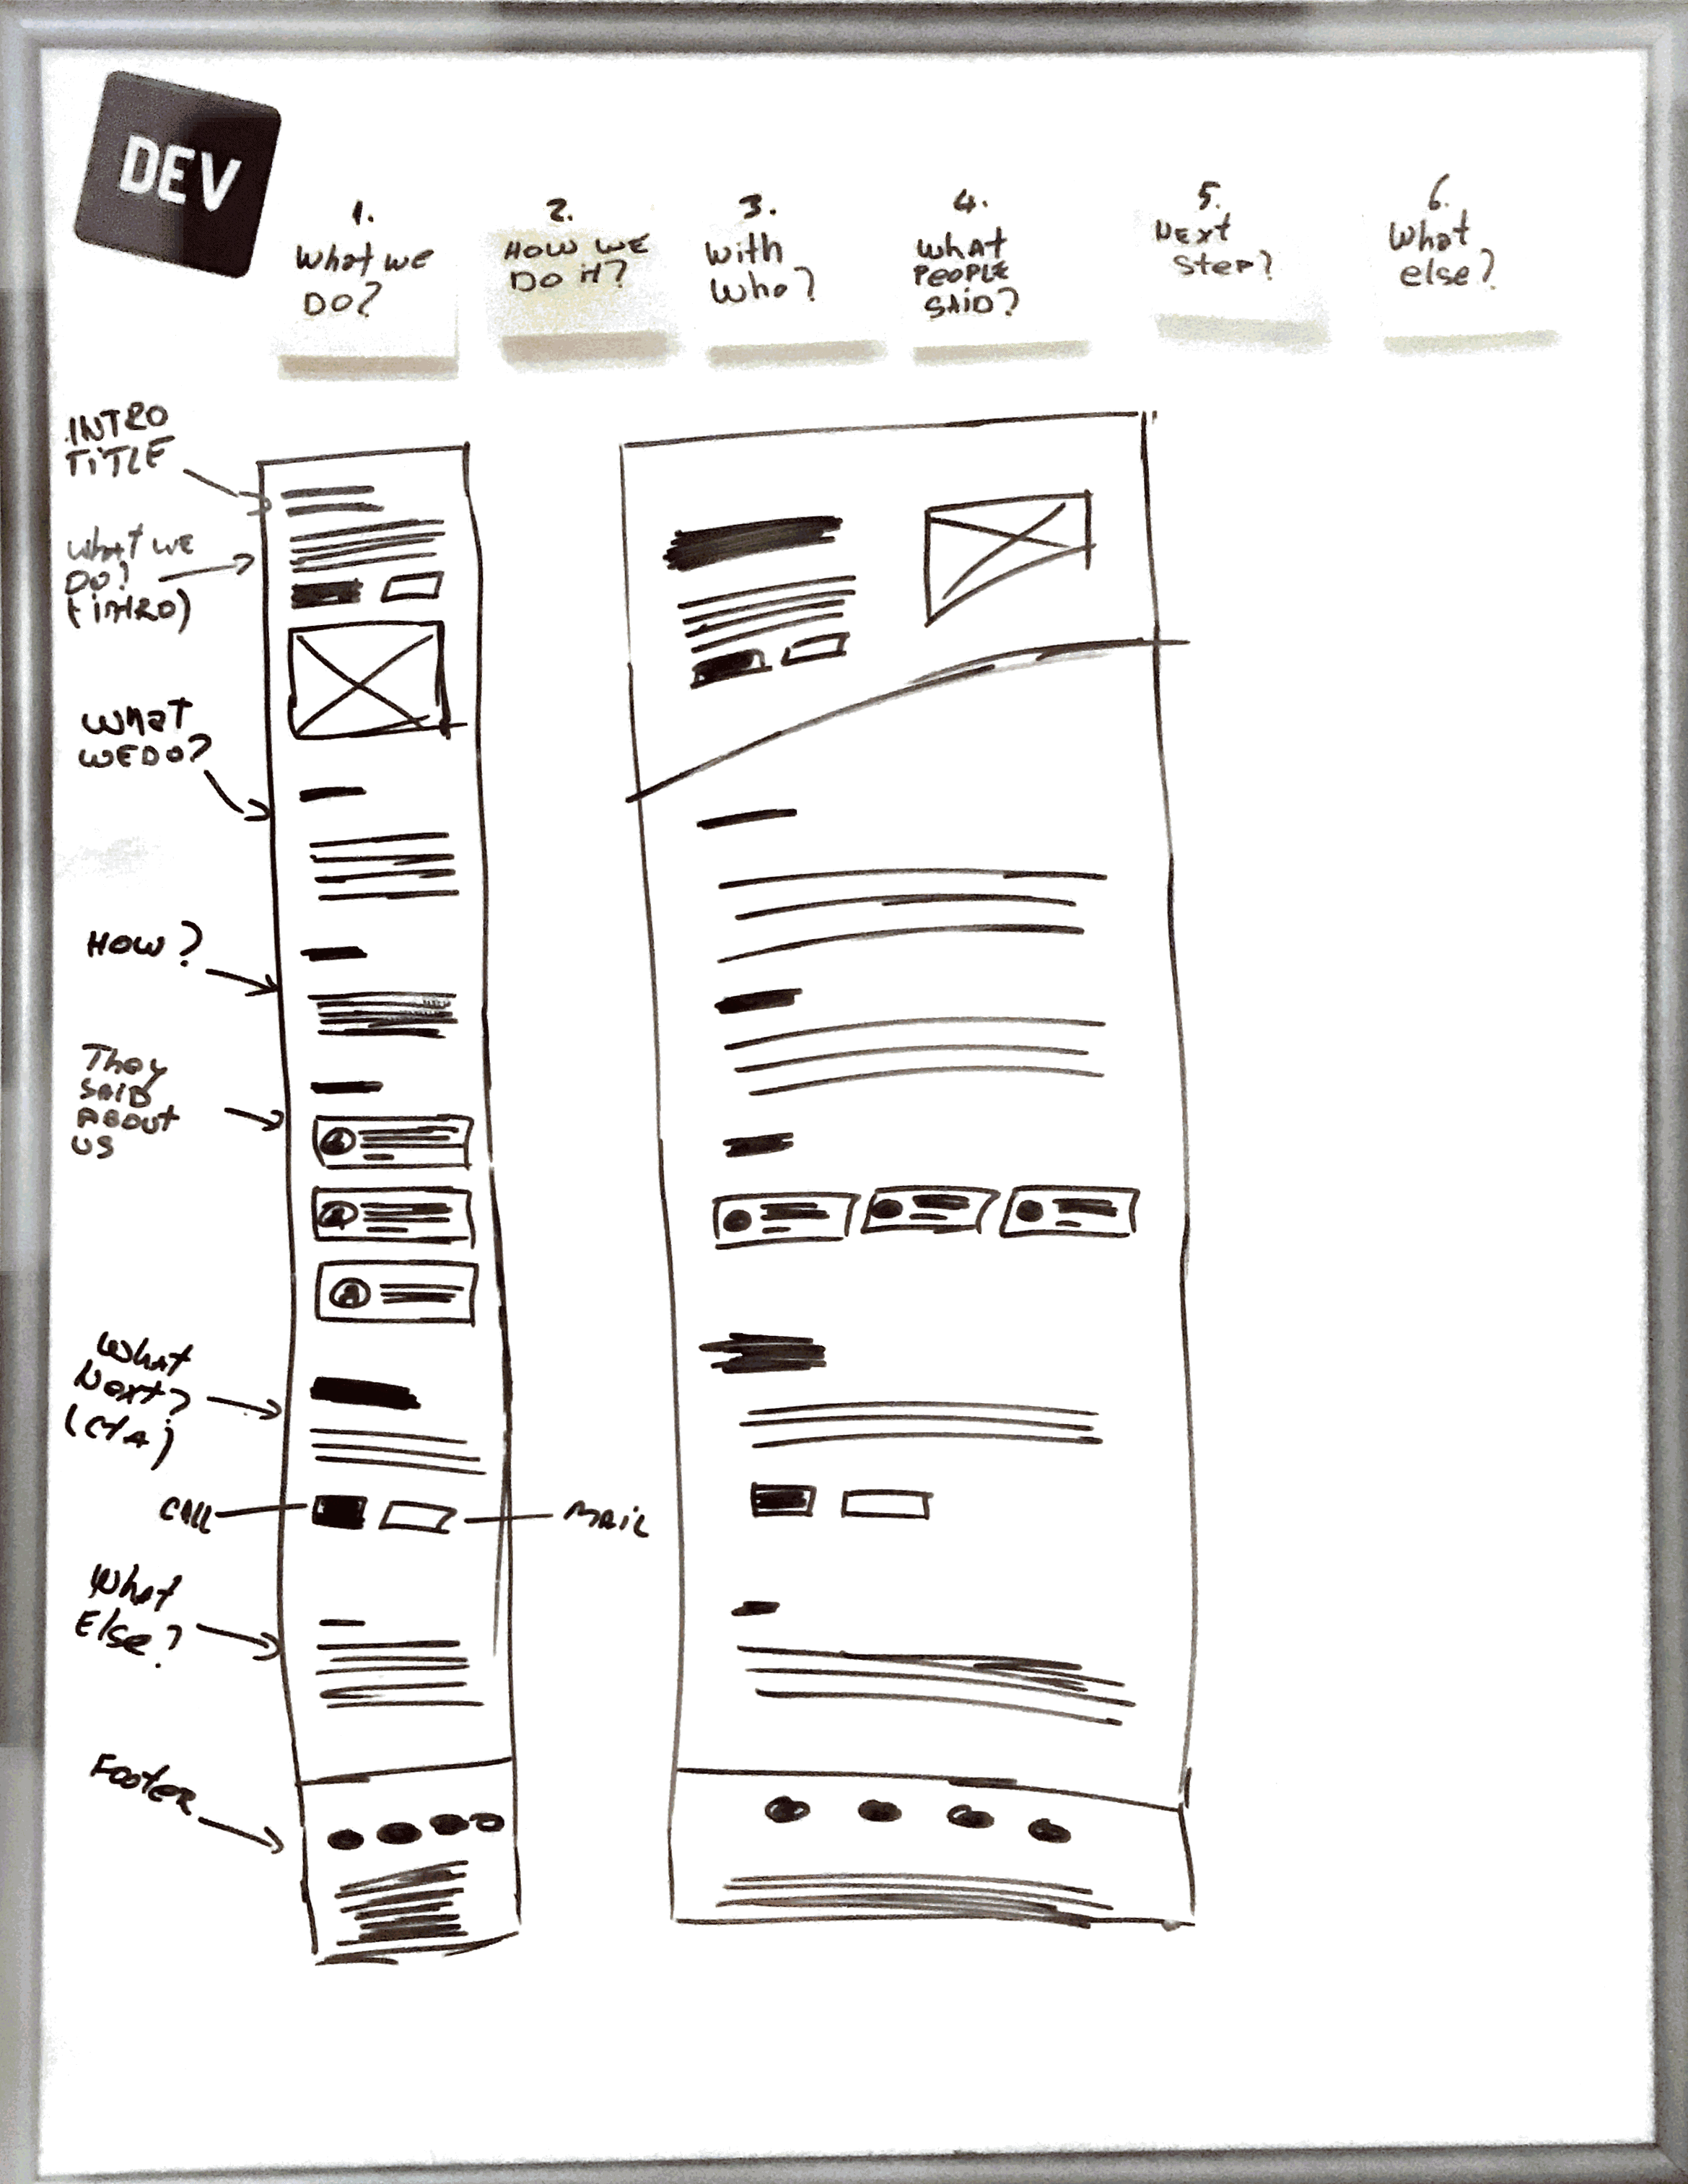 DEV
1.
What we
DO?
2.
HOW WE
DO it?
3.
With
Who?
4.
What
PEOPLE
SAiD?
5.
NExt
Step?
6.
What
else?
INTRO
TiTLE
What we
DO?
(intro)
What
WE DO?
HOW?
They
SAiD
ABOUt
US
What
Next?
(CtA)
CALL
MAiL
What
Else?
FootER